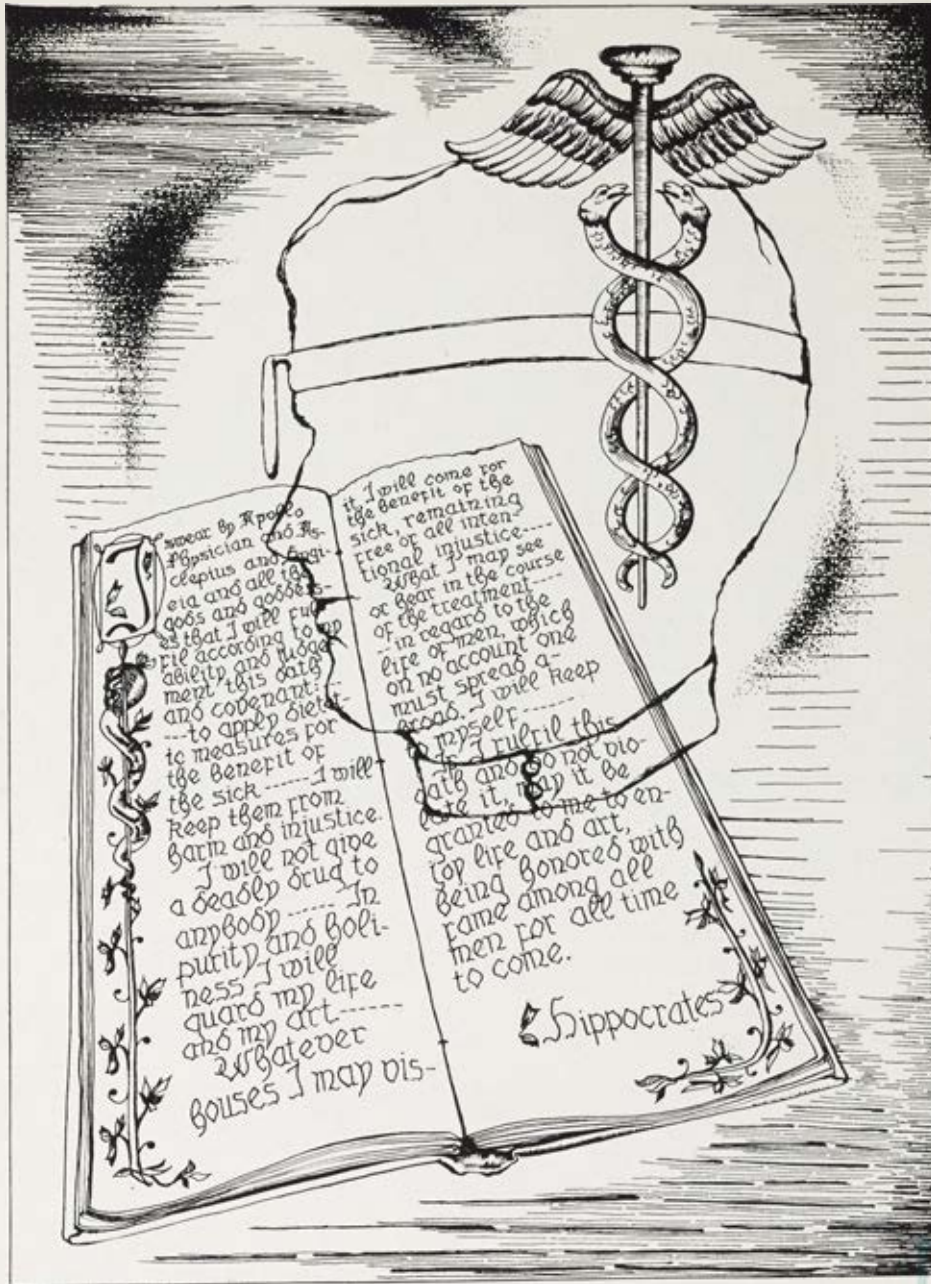 I swear by Apollo
Physician and As-
clepius and Hygi-
eia and all the
gods and goddess-
es that I will ful-
fil according to my
ability and judge-
ment this oath
and covenant:--
---to apply dietet-
ic measures for
the benefit of
the sick ----- I will
keep them from
harm and injustice.
I will not give
a deadly drug to
anybody ----- In
purity and holi-
ness I will
guard my life
and my art------
Whatever
houses I may vis-
it, I will come for
the benefit of the
sick, remaining
free of all inten-
tional injustice----
What I may see
or hear in the course
of the treatment----
-- in regard to the
life of men, which
on no account one
must spread a-
broad, I will keep
to myself -----
If I fulfil this
oath and do not vio-
late it, may it be
granted to me to en-
joy life and art,
being honored with
fame among all
men for all time
to come.
Hippocrates